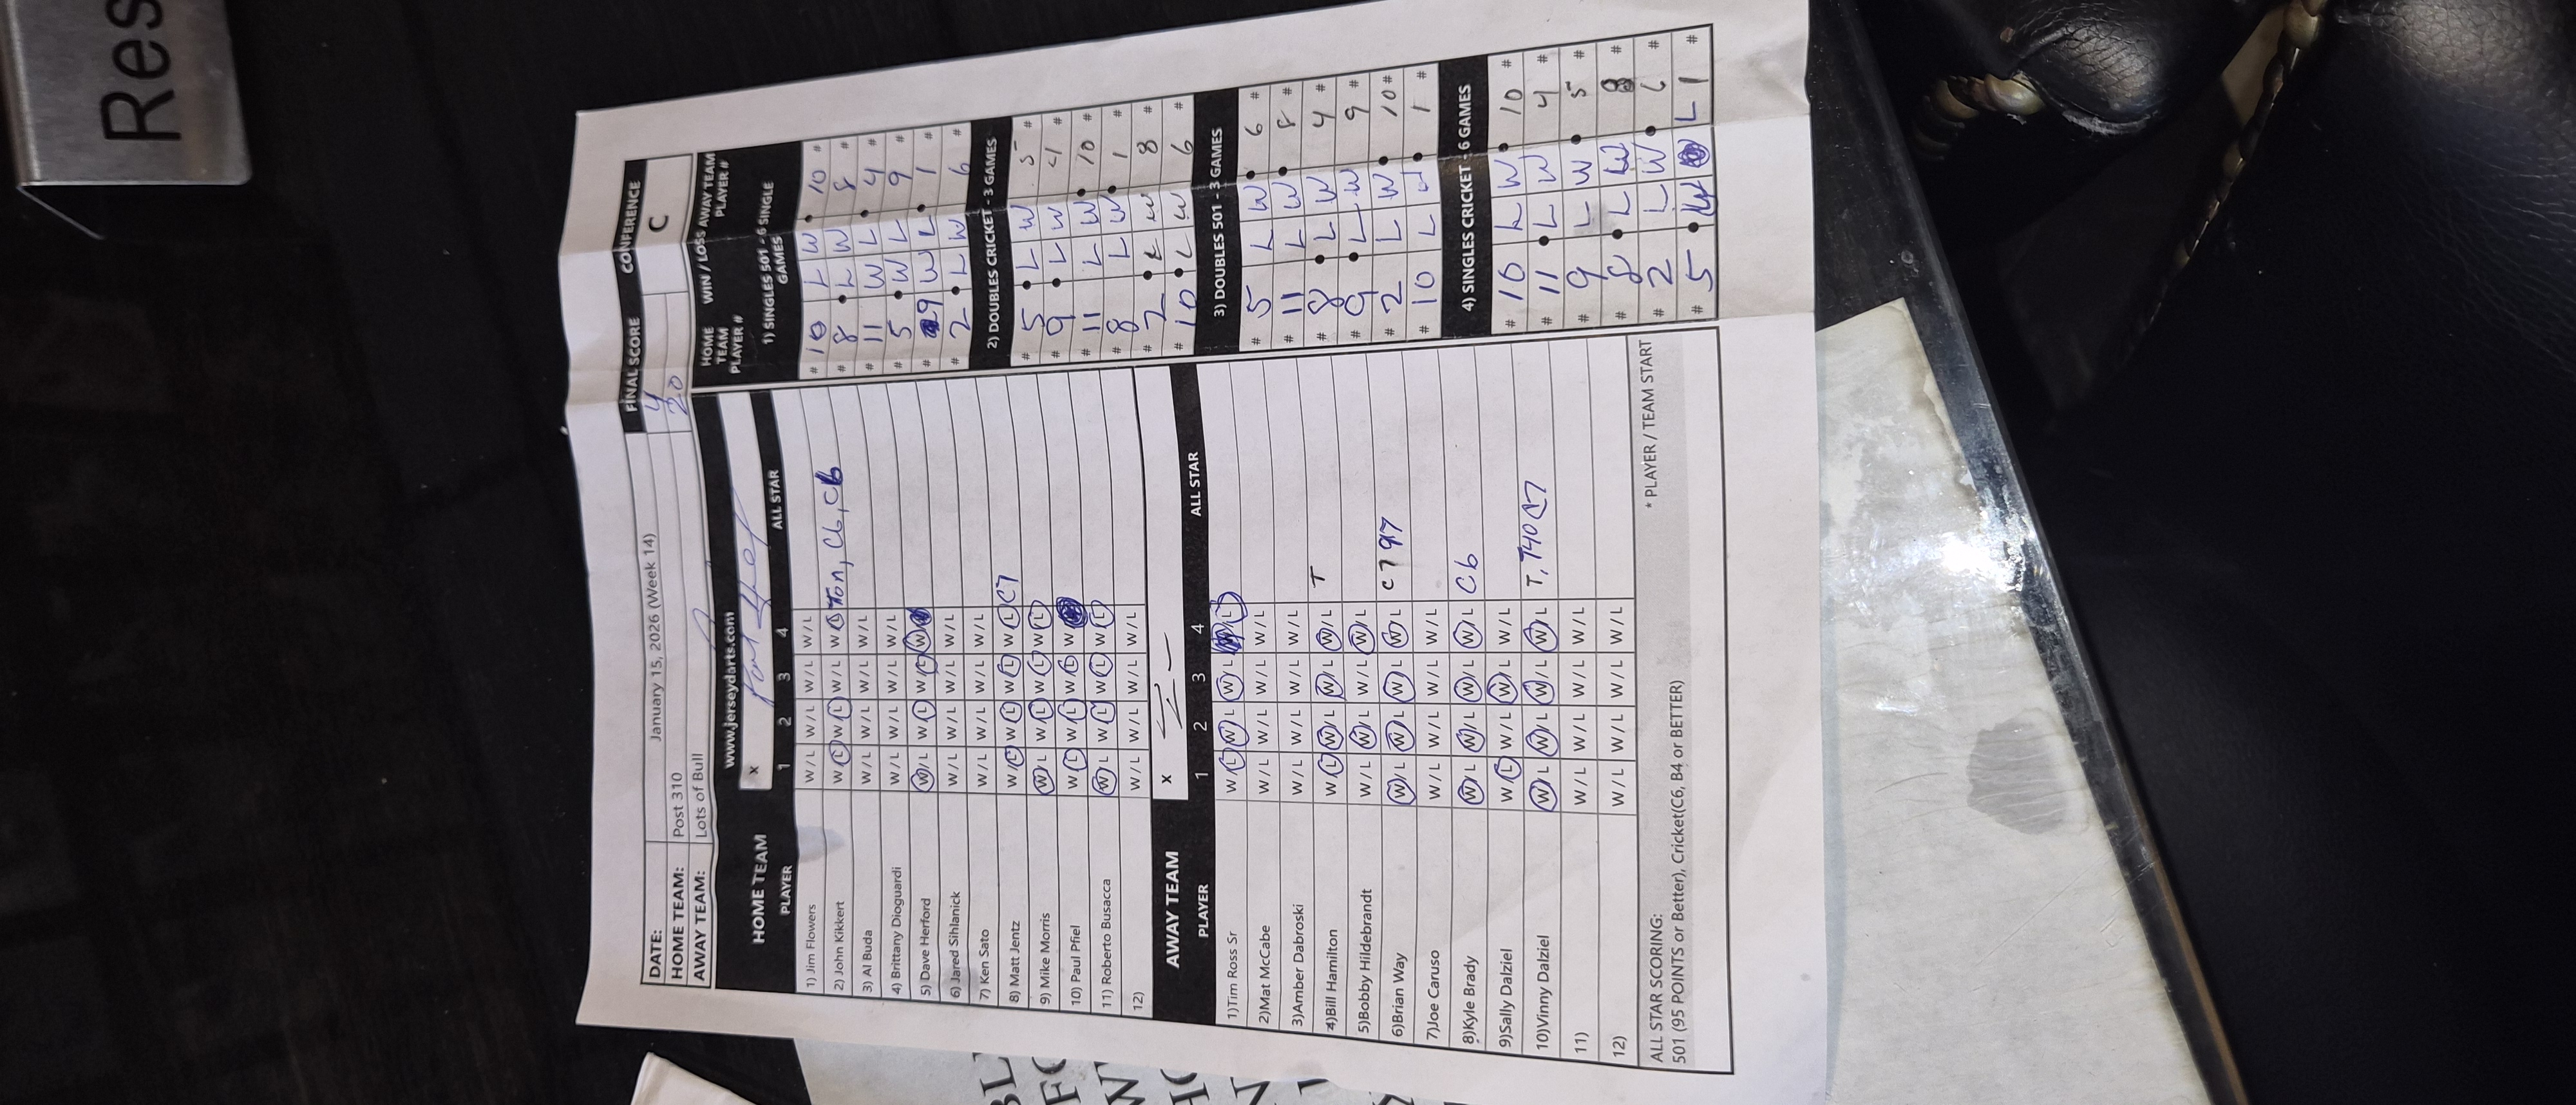 Res
DATE: January 15, 2026 (Week 14)
HOME TEAM: Post 310
AWAY TEAM: Lots of Bull
FINAL SCORE
4
20
CONFERENCE
C
www.jerseydarts.com
HOME TEAM x
PLAYER 1 2 3 4 ALL STAR
1) Jim Flowers W / L W / L W / L W / L
2) John Kikkert W / L W / L W / L W / L Ton, C6, C6
3) Al Buda W / L W / L W / L W / L
4) Brittany Dioguardi W / L W / L W / L W / L
5) Dave Herford W / L W / L W / L W
6) Jared Sihlanick W / L W / L W / L W / L
7) Ken Sato W / L W / L W / L W / L
8) Matt Jentz W / L W / L W / L W / L C7
9) Mike Morris W / L W / L W / L W / L
10) Paul Pfiel W / L W / L W / L W
11) Roberto Busacca W / L W / L W / L W / L
12) W / L W / L W / L W / L
AWAY TEAM x
PLAYER 1 2 3 4 ALL STAR
1)Tim Ross Sr W / L W / L W / L L
2)Mat McCabe W / L W / L W / L W / L
3)Amber Dabroski W / L W / L W / L W / L
4)Bill Hamilton W / L W / L W / L W / L T
5)Bobby Hildebrandt W / L W / L W / L W / L
6)Brian Way W / L W / L W / L W / L C7 97
7)Joe Caruso W / L W / L W / L W / L
8)Kyle Brady W / L W / L W / L W / L C6
9)Sally Dalziel W / L W / L W / L W / L
10)Vinny Dalziel W / L W / L W / L W / L T, T40 C7
11) W / L W / L W / L W / L
12) W / L W / L W / L W / L
ALL STAR SCORING:
501 (95 POINTS or Better), Cricket(C6, B4 or BETTER)
* PLAYER / TEAM START
HOME TEAM PLAYER # WIN / LOSS AWAY TEAM PLAYER #
1) SINGLES 501 - 6 SINGLE GAMES
# 10 L W 10 #
# 8 L W 8 #
# 11 W L 4 #
# 5 W L 9 #
# 9 W L 1 #
# 2 L W 6 #
2) DOUBLES CRICKET - 3 GAMES
# 5 L W 5 #
# 9 L W 4 #
# 11 L W 10 #
# 8 L W 1 #
# 2 L W 8 #
# 10 L W 6 #
3) DOUBLES 501 - 3 GAMES
# 5 L W 6 #
# 11 L W 8 #
# 8 L W 4 #
# 9 L W 9 #
# 2 L W 10 #
# 10 L W 1 #
4) SINGLES CRICKET - 6 GAMES
# 10 L W 10 #
# 11 L W 4 #
# 9 L W 5 #
# 8 L W 8 #
# 2 L W 6 #
# 5 W L 1 #